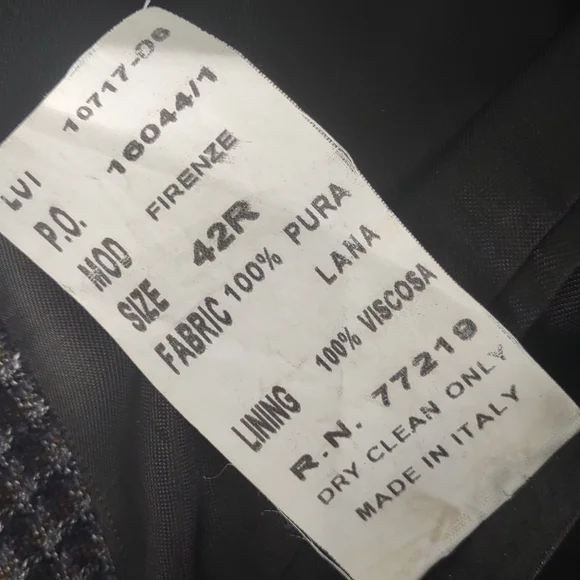 LVI 10717-06
P.O. 16044/1
MOD FIRENZE
SIZE 42R
FABRIC 100% PURA
LANA
LINING 100% VISCOSA
R.N. 77219
DRY CLEAN ONLY
MADE IN ITALY